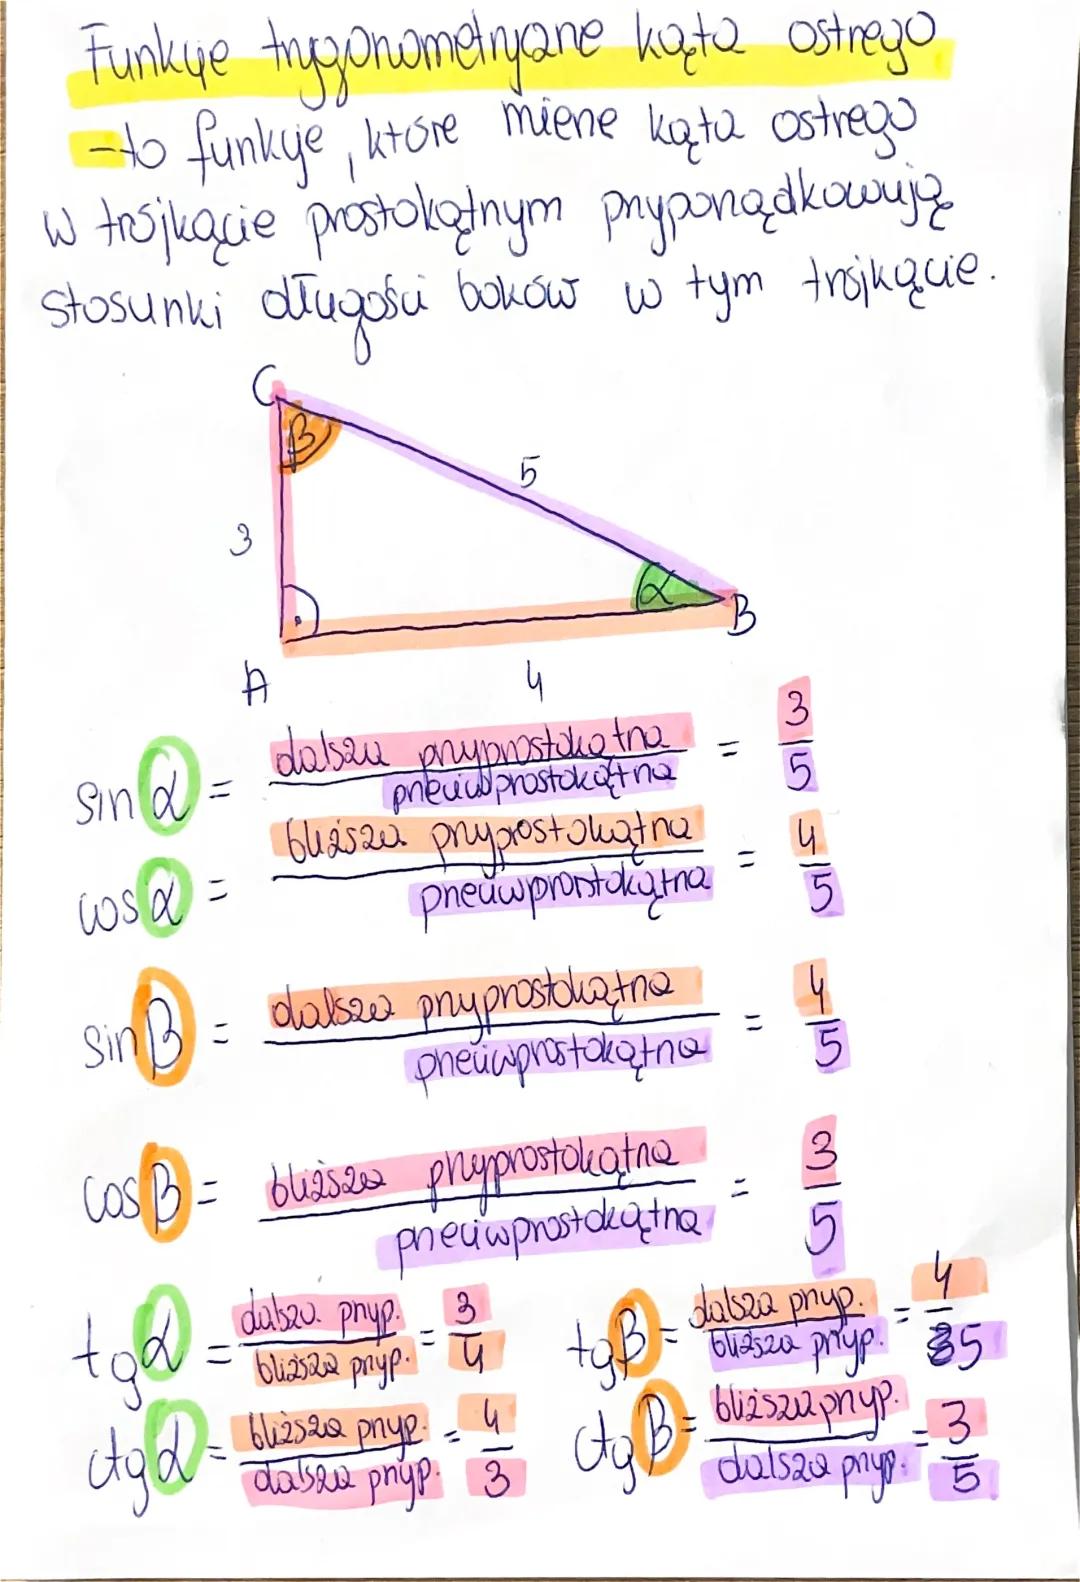 Funkcje trygonometryczne kąta ostrego
- to funkcje, które mierze kąta ostrego
w trójkącie prostokątnym przyporządkowują
stosunki długości boków w tym trójkącie.
C
β
5
3
α
B
A
4
sin α = dalsza przyprostokątna / przeciwprostokątna = 3/5
cos α = bliższa przyprostokątna / przeciwprostokątna = 4/5
sin β = dalsza przyprostokątna / przeciwprostokątna = 4/5
cos β = bliższa przyprostokątna / przeciwprostokątna = 3/5
tg α = dalsza przyp. / bliższa przyp. = 3/4
tg β = dalsza przyp. / bliższa przyp. = 4/5
ctg α = bliższa przyp. / dalsza przyp. = 4/3
ctg β = bliższa przyp. / dalsza przyp. = 3/5